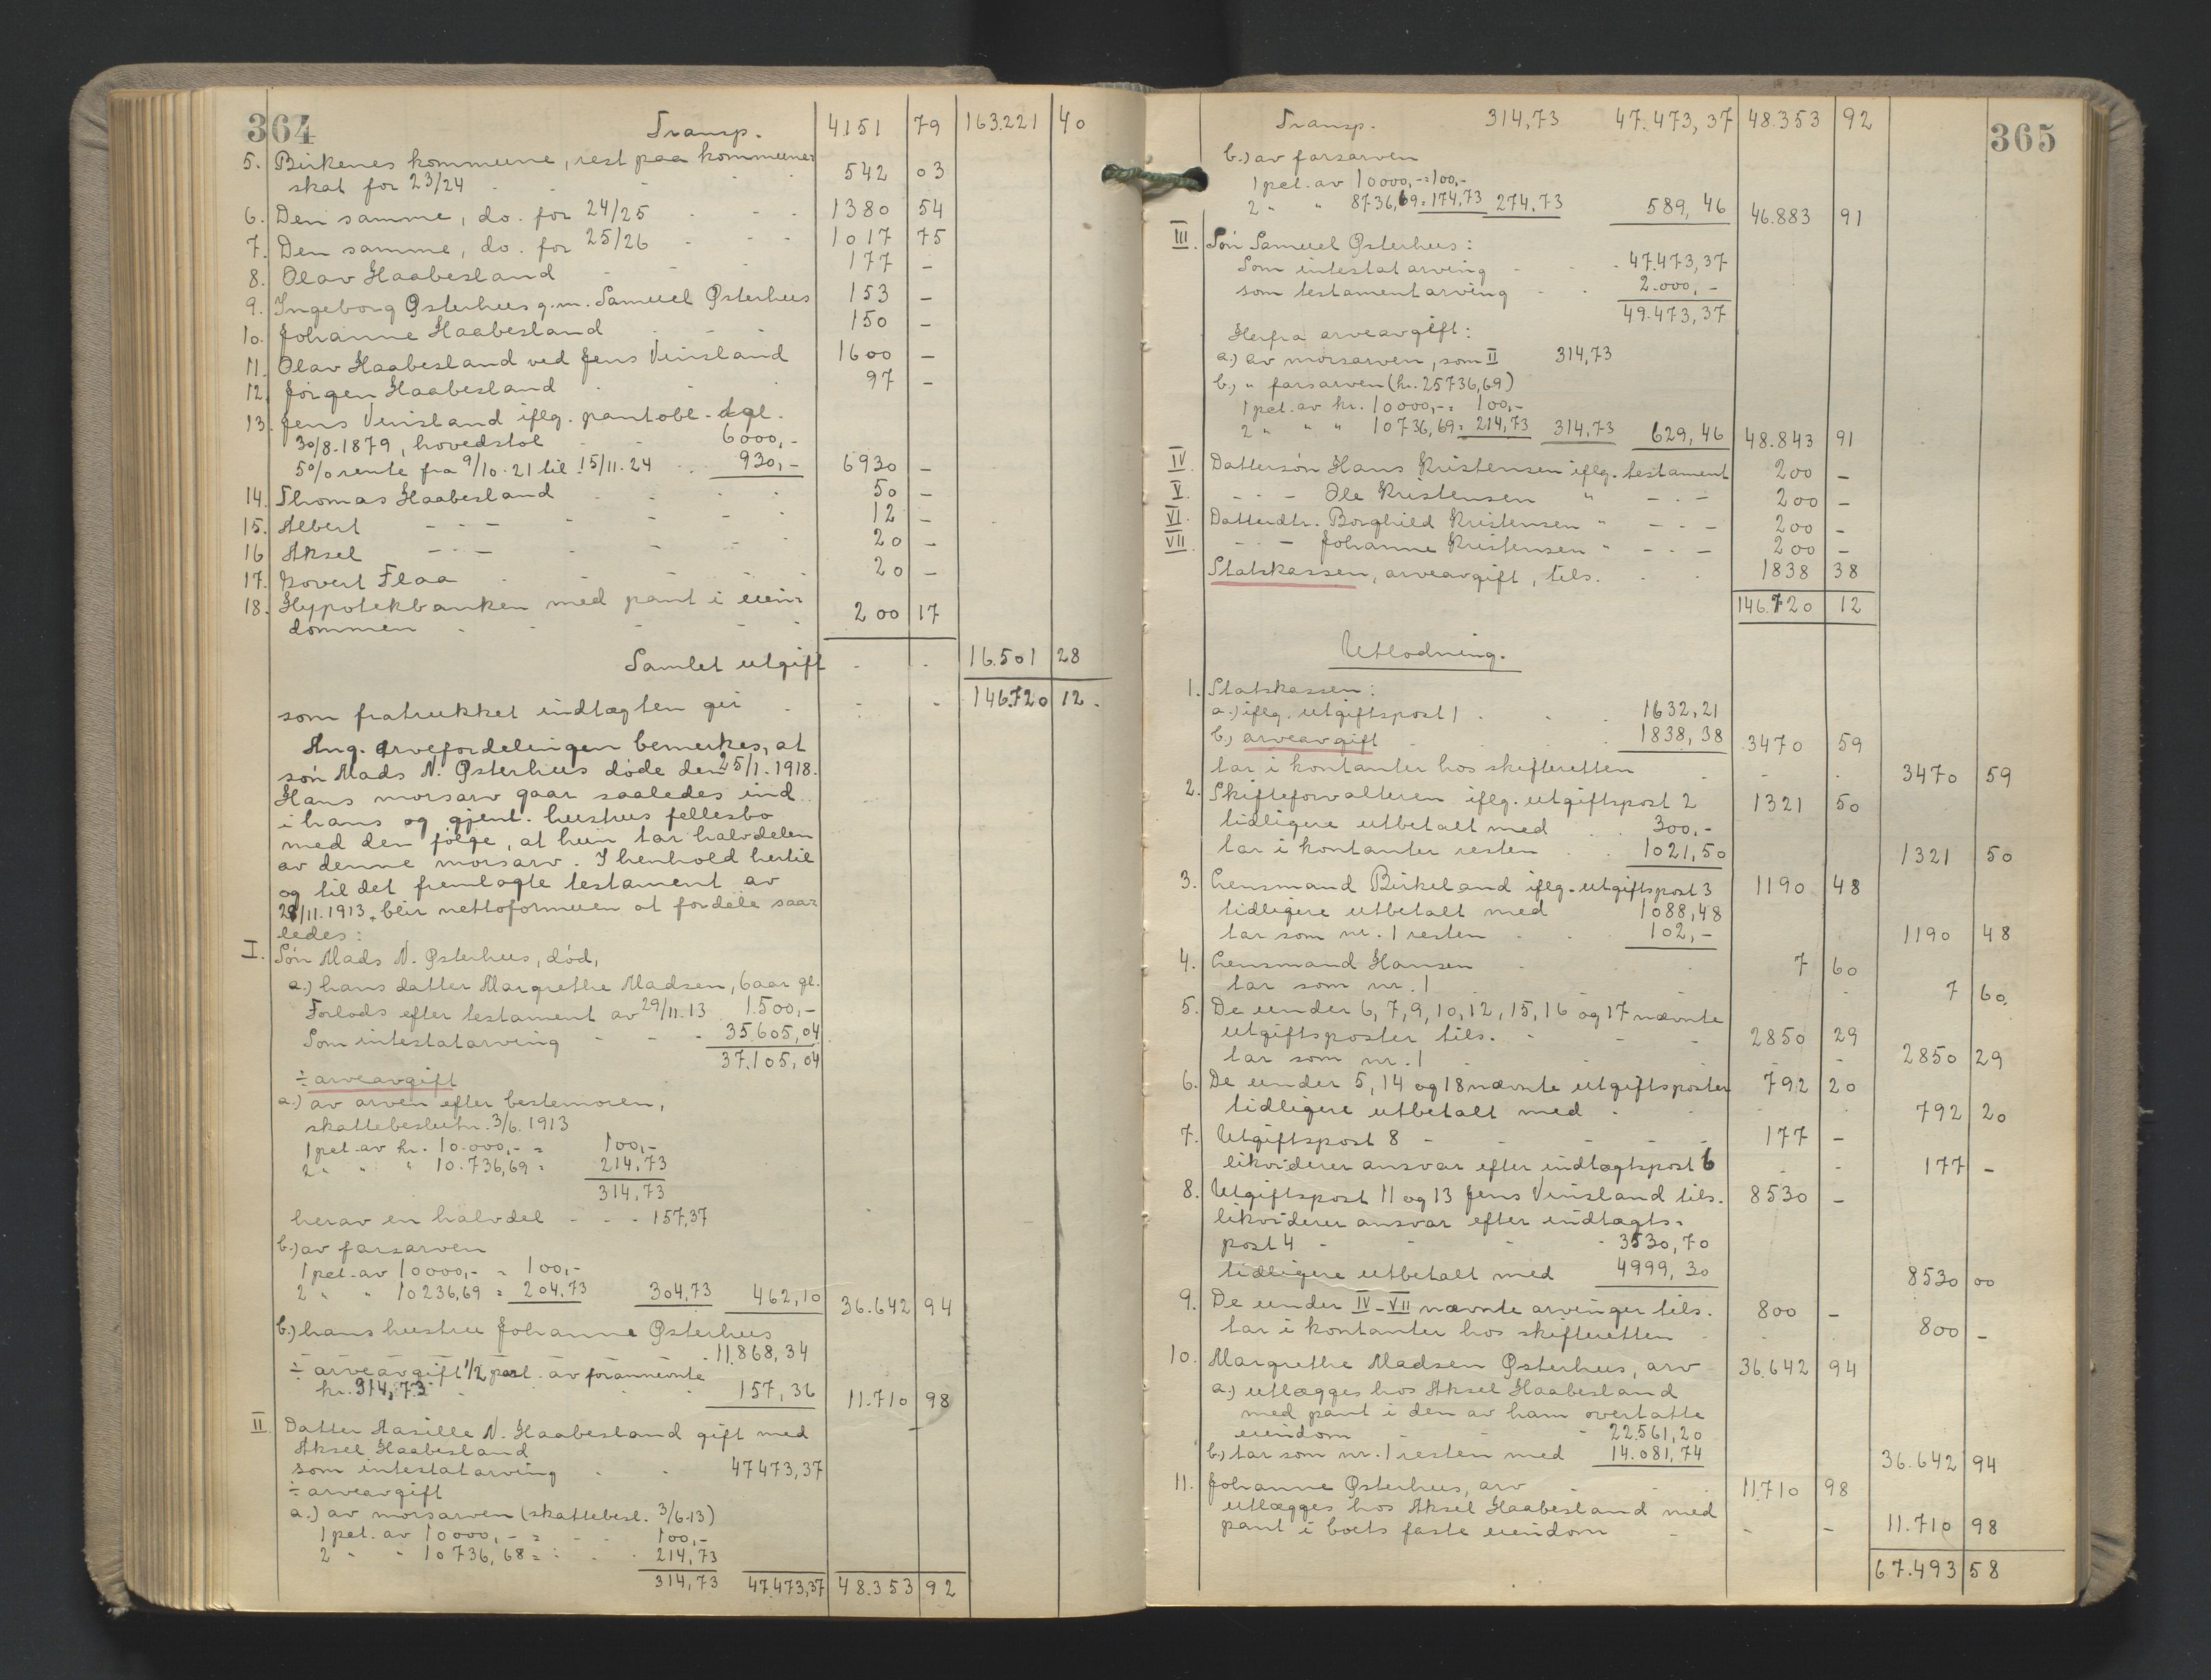 364
Transp. 4151 79 163.221 40
5. Birkenes kommune, rest paa kommune=
skat for 23/24 542 03
6. Den samme, do. for 24/25 1380 54
7. Den samme, do. for 25/26 1017 75
8. Olav Haabesland 177 -
9. Ingeborg Østerhus g.m. Samuel Østerhus 153 -
10. Johanne Haabesland 150 -
11. Olav Haabesland ved Jens Veirsland 1600 -
12. Jörgen Haabesland 97 -
13. Jens Veirsland iflg. pantobl. dgl.
30/8-1879, hovedstol 6000,-
5% rente fra 9/10-21 til 15/11-24 930,- 6930 -
14. Thomas Haabesland 50 -
15. Albert - - - 12 -
16 Aksel - - - 20 -
17. Kovert Flaa 20 -
18. Hypotekbanken med pant i eien=
dommen 200 17
Samlet utgift 16.501 28
som fratrukket indtægten gir 146.720 12.
Ang. arvefordelingen bemerkes, at
søn Mads N. Østerhus døde den 25/1-1918.
Hans morsarv gaar saaledes ind
i hans og gjenl. hustrus fellesbo
med den følge, at hun tar halvdelen
av denne morsarv. I henhold hertil
og til det fremlagte testament av
29/11.1913, blir nettoformuen at fordele saa=
ledes:
I. Søn Mads N. Østerhus, död,
a.) hans datter Margrethe Madsen, 6 aar gl.
Forlods efter testament av 29/11.13 1.500,-
Som intestatarving 35.605,04
37.105,04
÷ arveavgift
a.) av arven efter bestemoren,
skattebeslutn. 3/6.1913
1 pct. av kr. 10.000,- = 100,-
2 " " " 10.736,69 = 214,73
314,73
herav en halvdel 157,37
b.) av farsarven
1 pct. av 10000,- = 100,-
2 " " 10236,69 = 204,73 304,73 462,10 36.642 94
b.) hans hustru Johanne Østerhus
11.868,34
÷ arveavgift 1/2 part. av forannevnte
kr. 314,73 157,36 11.710 98
II. Datter Aasille N. Haabesland gift med
Aksel Haabesland
som intestatarving 47473,37
÷ arveavgift
a.) av morsarven (skattebesl. 3/6-13)
1 pct. av 10000,- = 100,-
2 " " 10736,68 = 214,73
314,73 47473,37 48.353 92
365
Transp. 314,73 47.473,37 48.353 92
b.) av farsarven
1 pct. av 10000,- = 100,-
2 " " 8736,69 = 174,73 274,73 589,46 46.883 91
III. Søn Samuel Østerhus:
Som intestatarving 47.473,37
som testamentarving 2.000,-
49.473,37
Herfra arveavgift:
a.) av morsarven, som II 314,73
b.) " farsarven (kr. 25736,69)
1 pct. av kr. 10000,- = 100,-
2 " " " 10736,69 = 214,73 314,73 629,46 48.843 91
IV Dattersön Hans Kristensen iflg. testament 200 -
V. - - - Ole Kristensen " - - - 200 -
VI. Datterdtr. Borghild Kristensen " - - - 200 -
VII - - - Johanne Kristensen " - - - 200 -
Statskassen, arveavgift, tils. 1838 38
146.720 12
Utlodning.
1. Statskassen:
a.) iflg. utgiftspost 1 1632,21
b.) arveavgift 1838,38 3470 59
tar i kontanter hos skifteretten 3470 59
2. Skifteforvalteren iflg. utgiftspost 2 1321 50
tidligere utbetalt med 300,-
tar i kontanter resten 1021,50 1321 50
3. Lensmand Birkeland iflg. utgiftspost 3 1190 48
tidligere utbetalt med 1088,48
tar som nr. 1 resten 102,- 1190 48
4. Lensmand Hansen 7 60
tar som nr. 1 7 60.
5. De under 6, 7, 9, 10, 12, 15, 16 og 17 nævnte
utgiftsposter tils. 2850 29
tar som nr. 1 2850 29
6. De under 5, 14 og 18 nævnte utgiftsposter 792 20
tidligere utbetalt med 792 20
7. Utgiftspost 8 177 -
likviderer ansvar efter indtægtspost 6 177 -
8. Utgiftspost 11 og 13 Jens Veirsland tils. 8530 -
likviderer ansvar efter indtægts=
post 4 3530,70
tidligere utbetalt med 4999,30 8530 00
9. De under IV-VII nævnte arvinger tils. 800 -
tar i kontanter hos skifteretten 800 -
10. Margrethe Madsen Østerhus, arv 36.642 94
a.) utlægges hos Aksel Haabesland
med pant i den av ham overtatte
eiendom 22.561,20
b.) tar som nr. 1 resten med 14.081,74 36.642 94
11. Johanne Østerhus, arv 11.710 98
utlægges hos Aksel Haabesland med
pant i boets faste eiendom 11.710 98
67.493 58